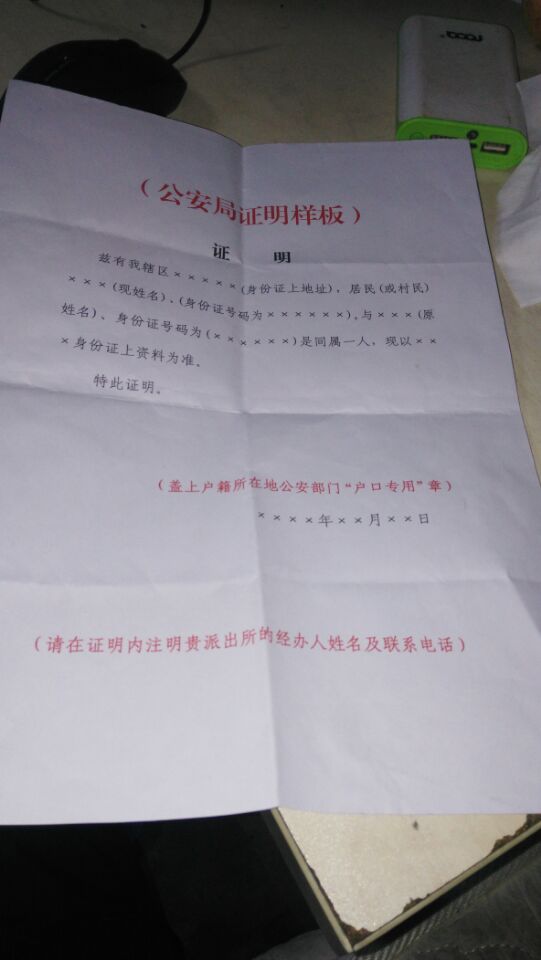 roca
(公安局证明样板)
证 明
兹有我辖区×××××(身份证上地址),居民(或村民)
×××(现姓名)、(身份证号码为××××××),与×××(原
姓名)、身份证号码为(××××××)是同属一人,现以××
×身份证上资料为准。
特此证明。
(盖上户籍所在地公安部门“户口专用”章)
××××年××月××日
(请在证明内注明贵派出所的经办人姓名及联系电话)